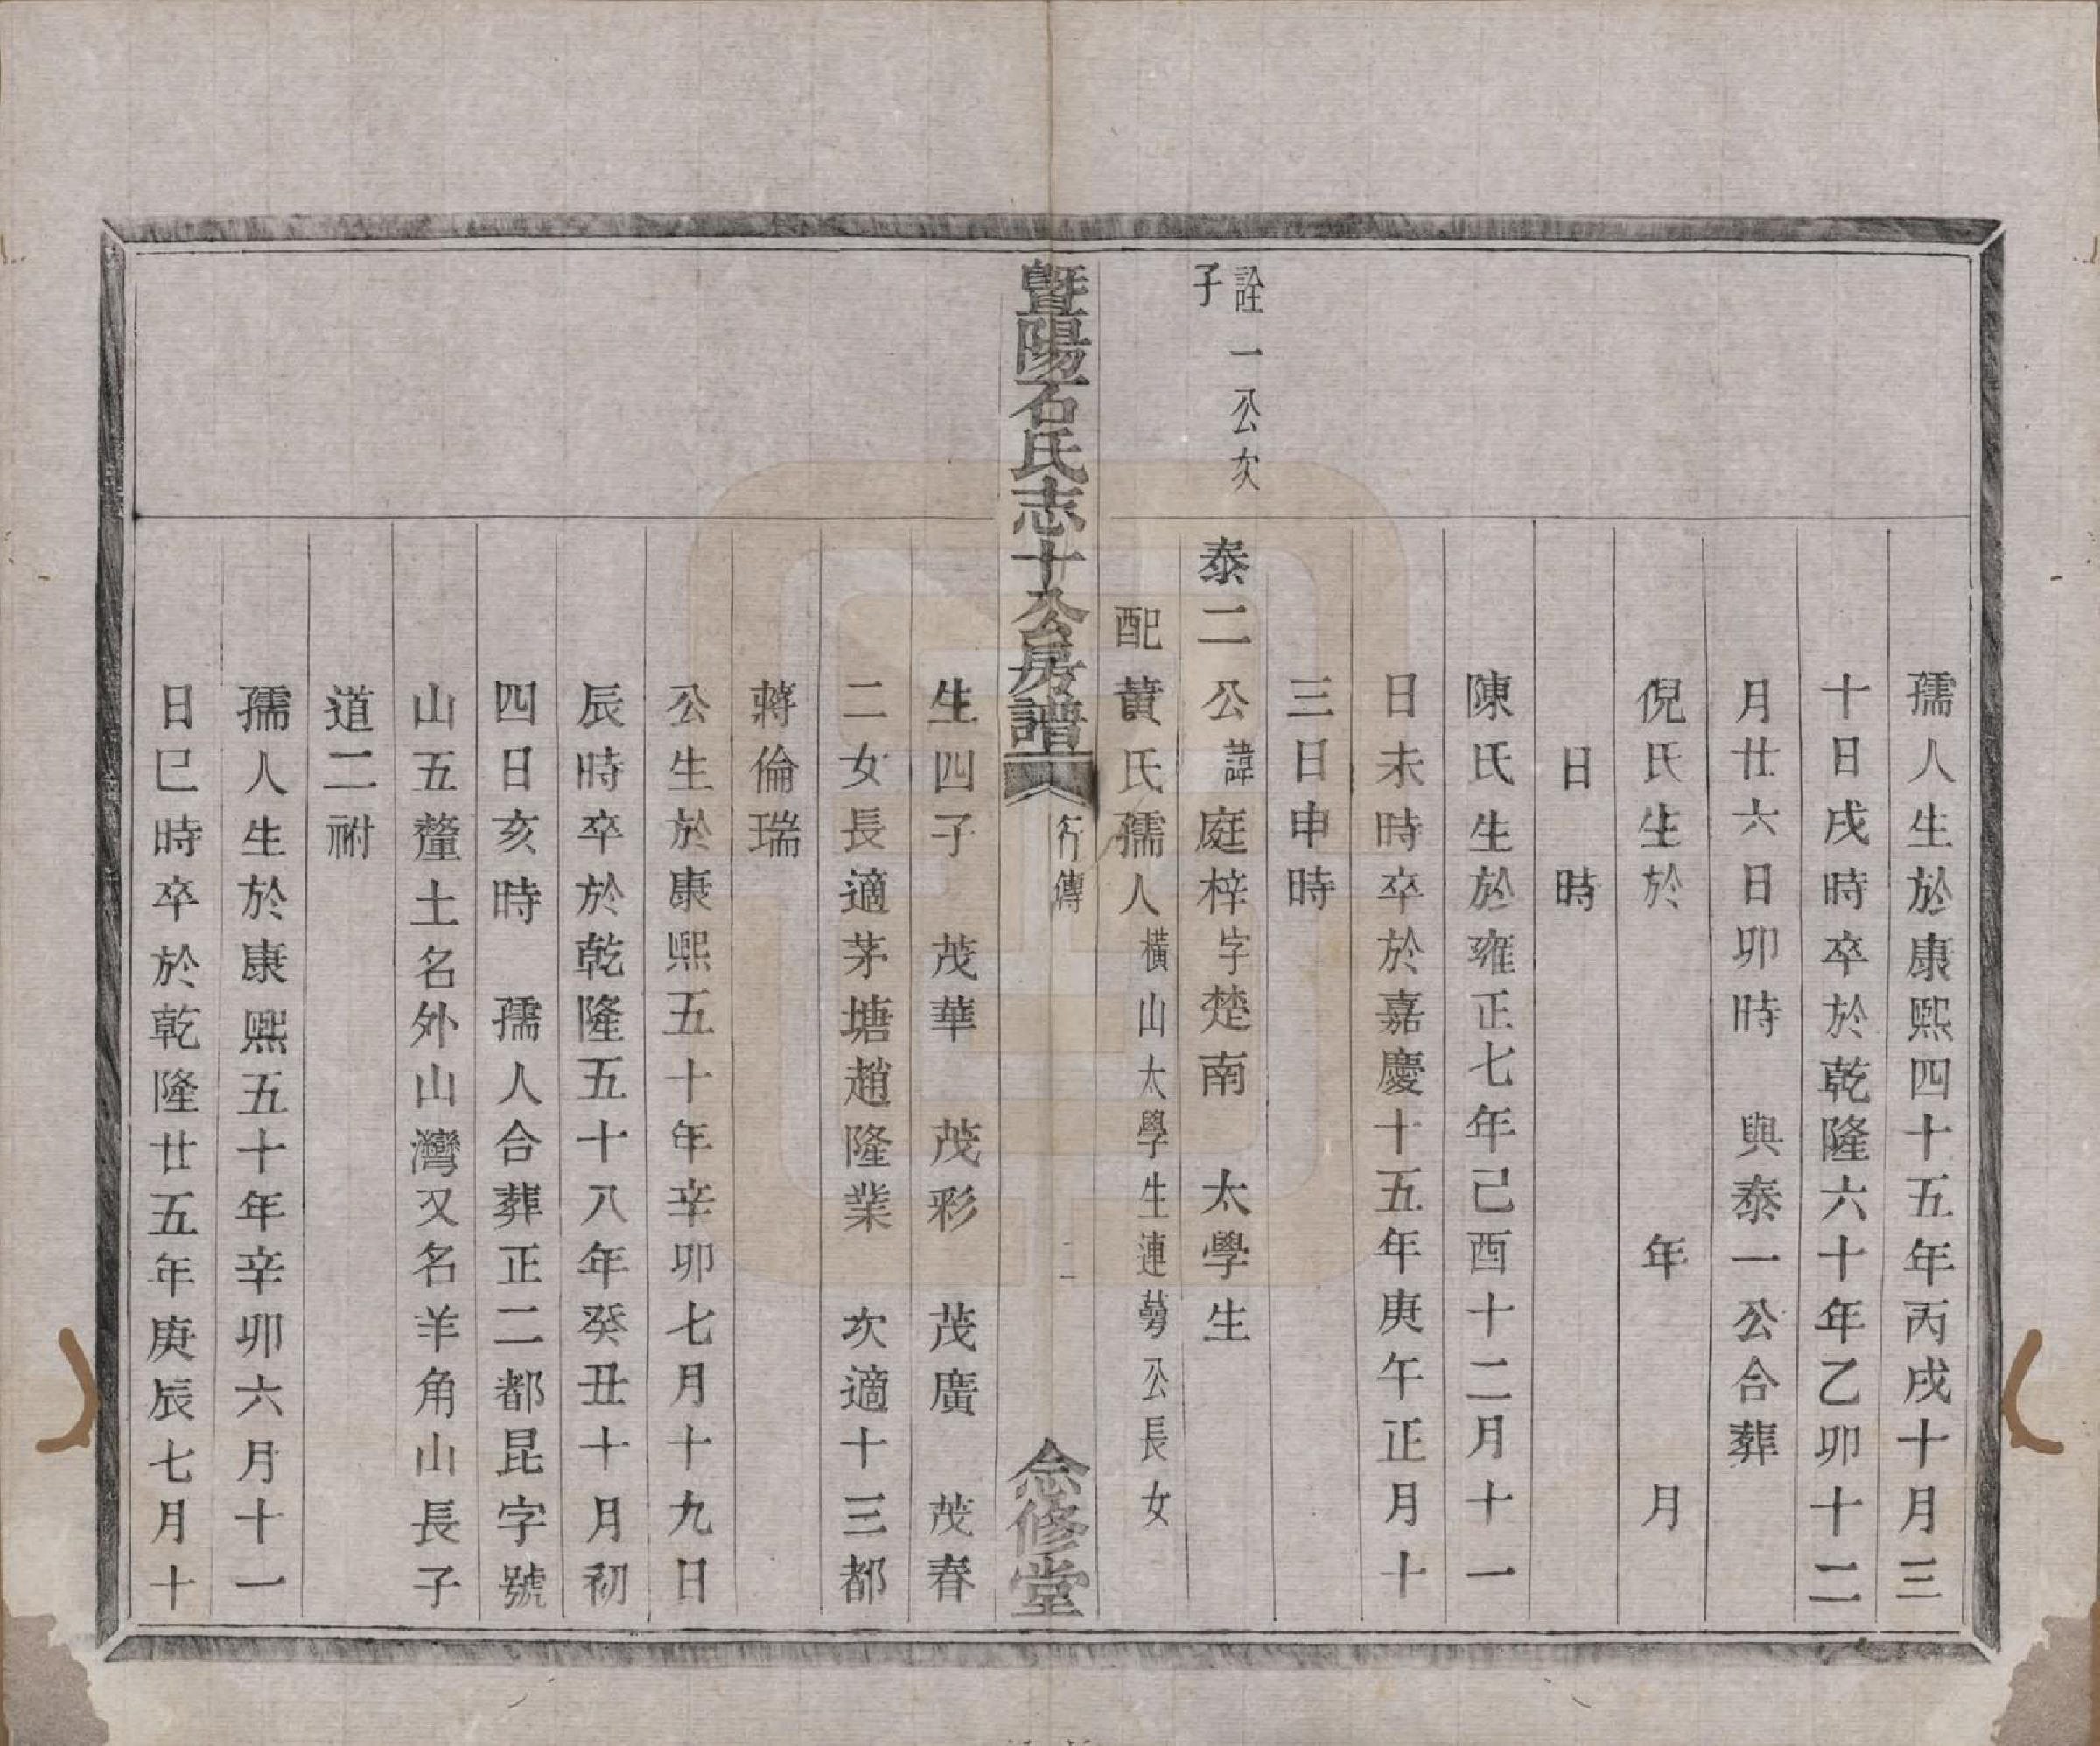 孺人生於康熙四十五年丙戌十月三
十日戌時卒於乾隆六十年乙卯十二
月廿六日卯時　與泰一公合葬
倪氏生於　年　月
日　時
陳氏生於雍正七年己酉十二月十一
日未時卒於嘉慶十五年庚午正月十
三日申時
詮一公次
子
泰二公諱庭梓字楚南　太學生
配黃氏孺人橫山太學生連勞公長女
暨陽石氏志十公房譜　行傳　二　念修堂
生四子　茂華　茂彩　茂廣　茂春
二女長適茅塘趙隆業　次適十三都
蔣倫瑞
公生於康熙五十年辛卯七月十九日
辰時卒於乾隆五十八年癸丑十月初
四日亥時　孺人合葬正二都昆字號
山五釐土名外山灣又名羊角山長子
道二祔
孺人生於康熙五十年辛卯六月十一
日巳時卒於乾隆廿五年庚辰七月十